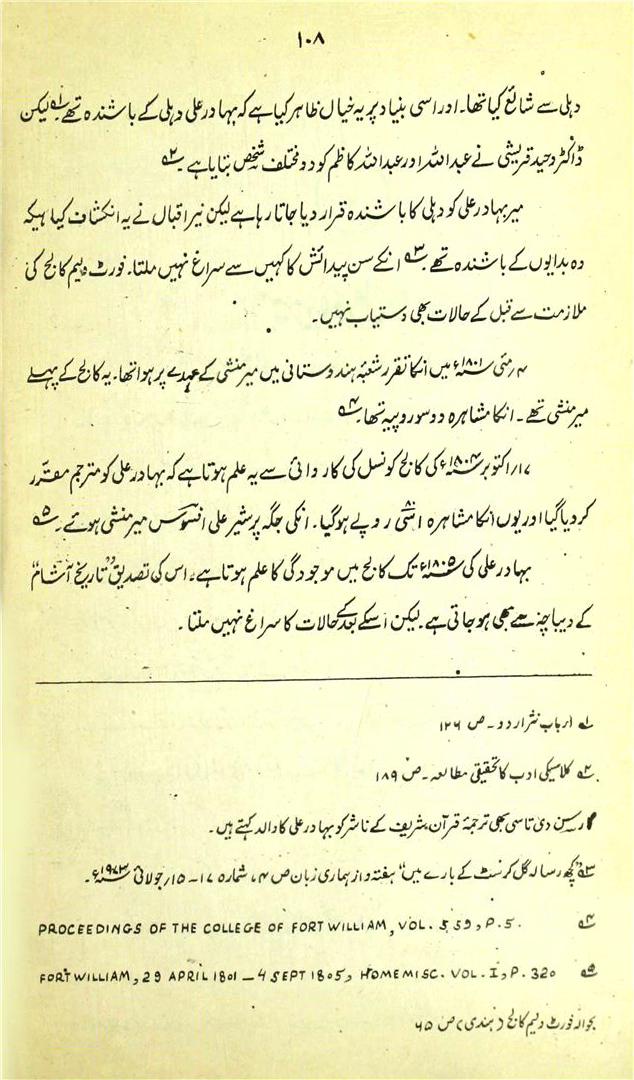 ۱۰۸
دہلی سے شائع کیا تھا۔ اور اسی بنیاد پر یہ خیال ظاہر کیا ہے کہ بہادر علی دہلی کے باشندہ تھے۔ ؎۱ لیکن
ڈاکٹر وحید قریشی نے عبداللہ اور عبداللہ کاظم کو دو مختلف شخص بتایا ہے۔ ؎۲
میر بہادر علی کو دہلی کا باشندہ قرار دیا جاتا رہا ہے لیکن نیر اقبال نے یہ انکشاف کیا ہیکہ
وہ بدایوں کے باشندہ تھے۔ ؎۳ انکے سن پیدائش کا کہیں سے سراغ نہیں ملتا۔ فورٹ ولیم کالج کی
ملازمت سے قبل کے حالات بھی دستیاب نہیں۔
۴؍ مئی ۱۸۰۱ء میں انکا تقرر شعبۂ ہندوستانی میں میر منشی کے عہدے پر ہوا تھا۔ یہ کالج کے پہلے
میر منشی تھے۔ انکا مشاہرہ دو سو روپیہ تھا۔ ؎۴
۱۷؍ اکتوبر ۱۸۰۴ء کی کالج کونسل کی کاروائی سے یہ علم ہوتا ہے کہ بہادر علی کو مترجم مقرر
کر دیا گیا اور یوں انکا مشاہرہ اسّی ۸۰ روپے ہو گیا۔ انکی جگہ پر شیر علی افسوس میر منشی ہوئے۔ ؎۵
بہادر علی کی ۱۸۰۵ء تک کالج میں موجودگی کا علم ہوتا ہے۔ اس کی تصدیق "تاریخ آشام"
کے دیباچہ سے بھی ہو جاتی ہے۔ لیکن اسکے بعد کے حالات کا سراغ نہیں ملتا۔
؎۱ ارباب نثر اردو۔ ص ۱۲۶
؎۲ کلاسیکی ادب کا تحقیقی مطالعہ۔ ص ۱۸۹
گارسن دی تاسی بھی ترجمۂ قرآن شریف کے ناشر کو بہادر علی کا والد کہتے ہیں۔
؎۳ "کچھ رسالہ گل کرسٹ کے بارے میں" ہفتہ واز ہماری زبان ص ۴، شمارہ ۱۷ - ۱۵؍ جولائی ۱۹۷۳ء۔
؎۴ PROCEEDINGS OF THE COLLEGE OF FORT WILLIAM, VOL. 559, P.5.
؎۵ FORT WILLIAM, 29 APRIL 1801 — 4 SEPT 1805, HOME MISC. VOL. I, P. 320
بحوالہ فورٹ ولیم کالج (ہندی) ص ۶۵